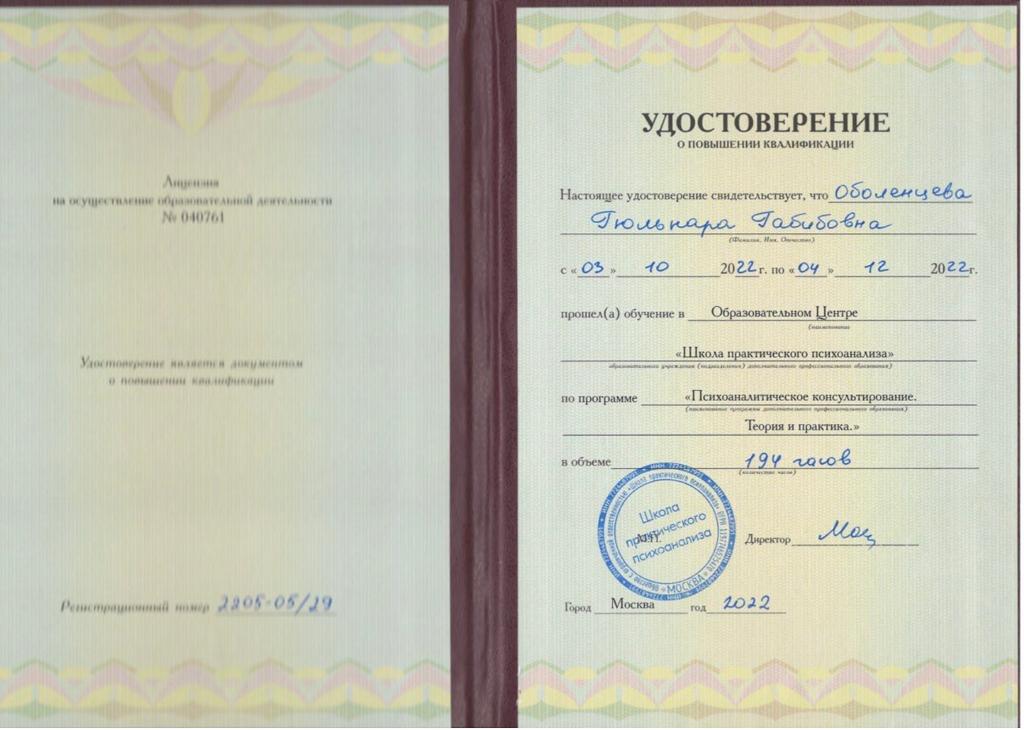 Лицензия
на осуществление образовательной деятельности
№ 040761
Удостоверение является документом
о повышении квалификации
Регистрационный номер 2205-05/29
УДОСТОВЕРЕНИЕ
О ПОВЫШЕНИИ КВАЛИФИКАЦИИ
Настоящее удостоверение свидетельствует, что Оболенцева
Гюльнара Габибовна
(Фамилия, Имя, Отчество)
с «03» 10 2022 г. по «04» 12 2022 г.
прошел(а) обучение в Образовательном Центре
(наименование
«Школа практического психоанализа»
образовательного учреждения (подразделения) дополнительного профессионального образования)
по программе «Психоаналитическое консультирование.
(наименование программы дополнительного профессионального образования)
Теория и практика.»
в объеме 194 часов
(количество часов)
Школа
практического
психоанализа
«МОСКВА»
М.П.
Директор
Город Москва год 2022